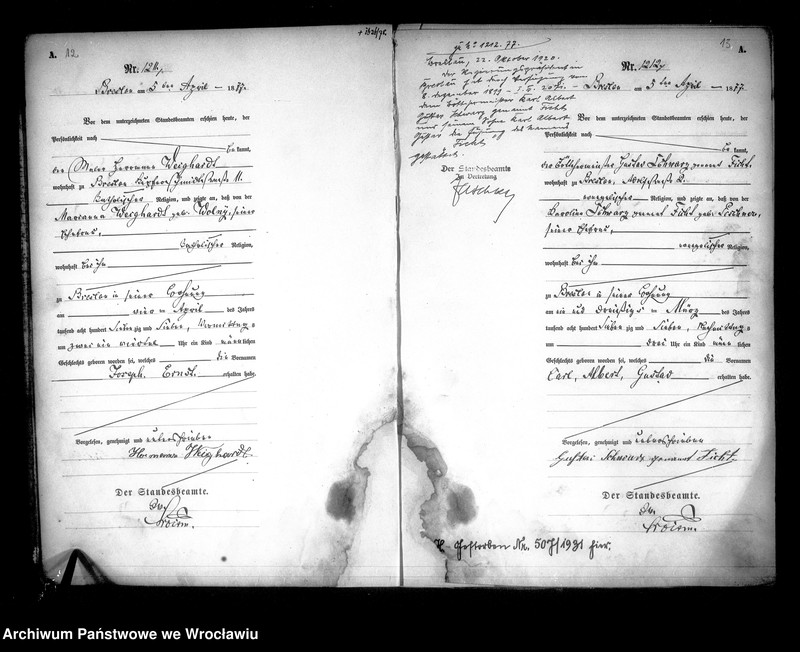 A. 12
Nr. 1211
Breslau am 5 ten April 1877.
Vor dem unterzeichneten Standesbeamten erschien heute, der
Persönlichkeit nach
bekannt,
der Maler Hermann Weighardt
wohnhaft zu Breslau
katholischer Religion, und zeigte an, daß von der
Marianna Weighardt geb. Wolny, seiner
Ehefrau,
katholischer Religion,
wohnhaft bei ihm
zu Breslau in seiner Wohnung
am vier ten April des Jahres
tausend acht hundert siebenzig und sieben, Vormittags
um zwei ein viertel Uhr ein Kind männlichen
Geschlechts geboren worden sei, welches die Vornamen
Joseph Ernst
erhalten habe.
Vorgelesen, genehmigt und unterschrieben
Hermann Weighardt.
Der Standesbeamte.
zu No 1212. 77.
Breslau, 22. Oktober 1920.
Der Regierungspräsident in
Breslau hat durch Verfügung vom
dem Böttchermeister Karl Albert
Gustav Schwarz genannt Ficht
und seinem Sohn Karl Albert
die Führung des Namens
Ficht
gestattet.
Der Standesbeamte
In Vertretung
13
A.
Nr. 1212
Breslau am 5 ten April 1877.
Vor dem unterzeichneten Standesbeamten erschien heute, der
Persönlichkeit nach
bekannt,
der Böttchermeister Gustav Schwarz genannt Ficht
wohnhaft zu Breslau,
evangelischer Religion, und zeigte an, daß von der
Karoline Schwarz genannt Ficht geb.
seiner Ehefrau,
evangelischer Religion,
wohnhaft bei ihm
zu Breslau in seiner Wohnung
am ein und dreißigsten März des Jahres
tausend acht hundert siebenzig und sieben, Nachmittags
um drei Uhr ein Kind männlichen
Geschlechts geboren worden sei, welches die Vornamen
Carl, Albert, Gustav
erhalten habe.
Vorgelesen, genehmigt und unterschrieben
Gustav Schwarz genannt Ficht.
Der Standesbeamte.
Gestorben Nr. 507/1931 hier.
Archiwum Państwowe we Wrocławiu